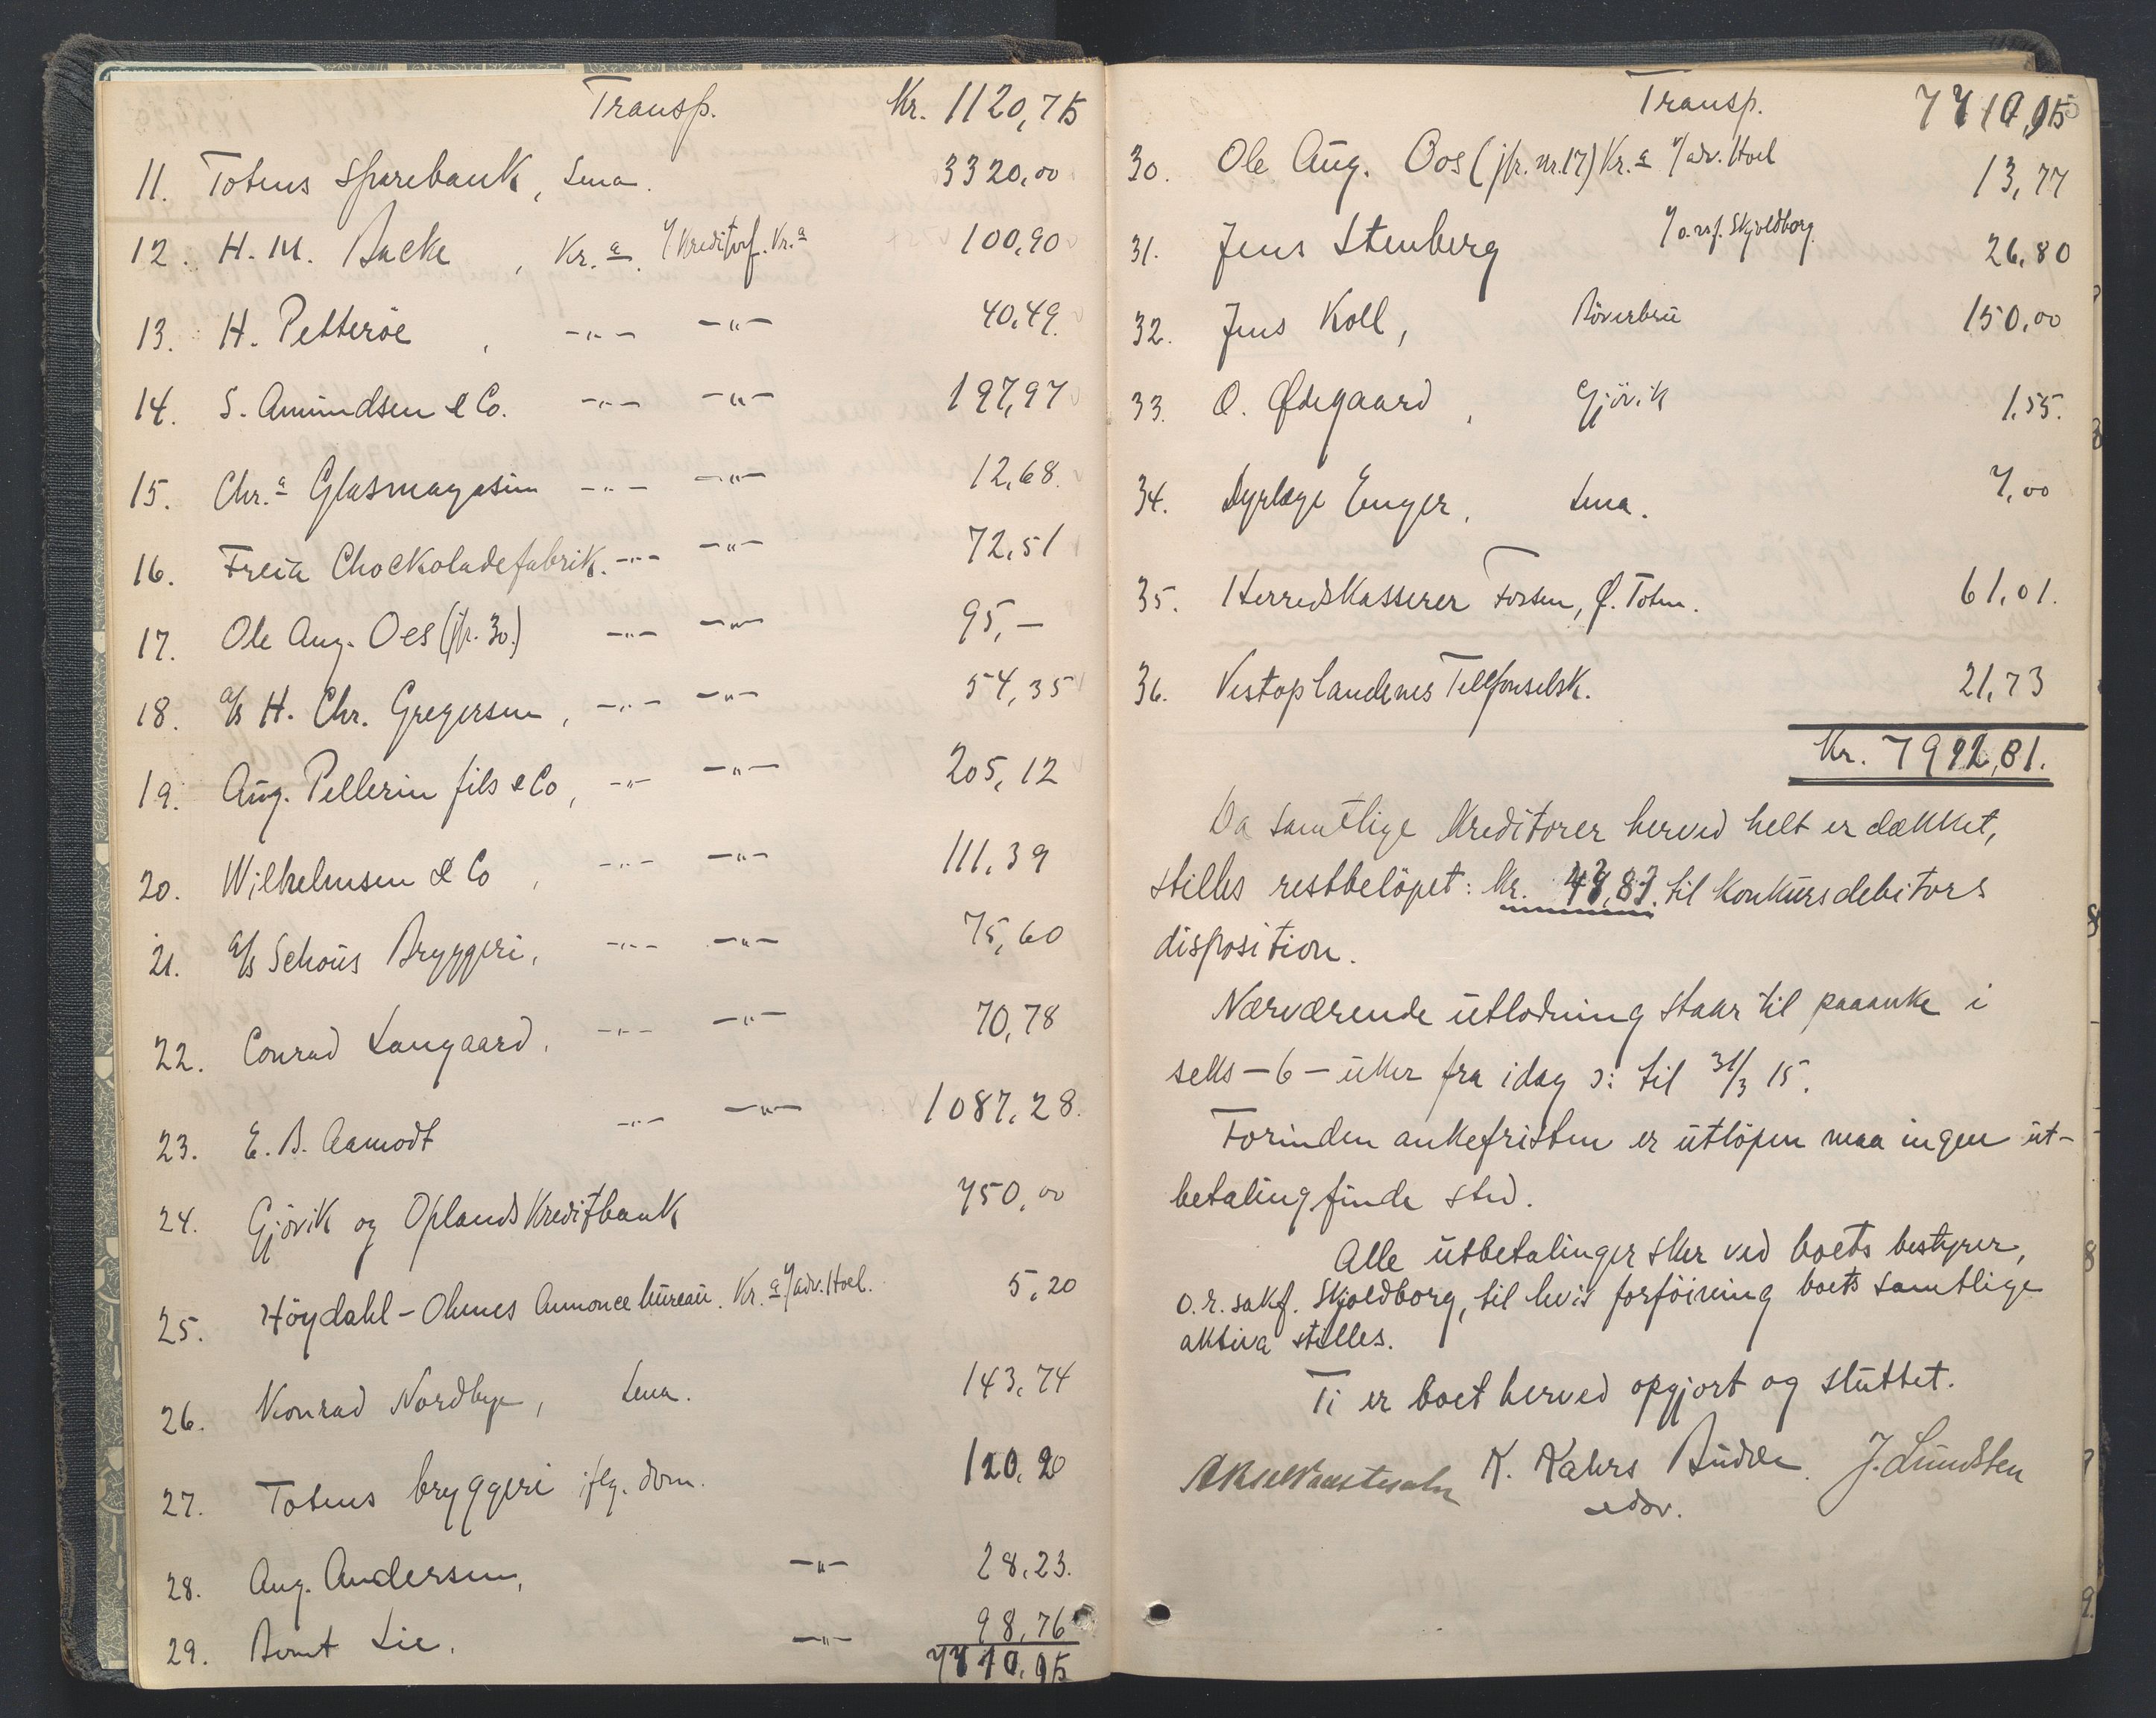 Transp. Kr. 1120,75
11. Totens Sparebank, Lena. 3320,00
12. H. M. Backe, Kr.a. v/ Kreditorf. Kr.a 100,90
13. H. Petteröe, -"- -"- 40,49.
14. S. Amundsen & Co. -"- -"- 197,97
15. Chr.a Glasmagasin -"- -"- 12,68.
16. Freia Chockoladefabrik. -"- -"- 72,51
17. Ole Aug. Oes (jfr. 30.) -"- -"- 95,—
18. A/S H. Chr. Gregersen, -"- -"- 54,35
19. Aug. Pellerin fils & Co, -"- -"- 205,12
20. Wilhelmsen & Co, -"- -"- 111,39
21. A/S Schous Bryggeri, -"- -"- 75,60
22. Conrad Langaard, -"- -"- 70,78
23. E. B. Aamodt -"- -"- 1087,28.
24. Gjövik og Oplands Kreditbank 750,00
25. Höydahl-Ohmes Annoncebureau. Kr.a v/ adv. Hoel. 5,20
26. Konrad Nordbye, Lena. 143,74
27. Totens bryggeri iflg. dom. 120,20
28. Aug. Andersen, -"- 28,23.
29. Bernt Lie, -"- 98,76
7710,95
Transp. 7710,95
30. Ole Aug. Oos (jfr. nr. 17) Kr.a v/ adv. Hoel 13,77
31. Jens Stenberg v/ o.r.sf. Skjoldborg. 26,80
32. Jens Koll, Böverbru 150,00
33. O. Ødegaard, Gjövik 1,55.
34. Dyrlæge Enger, Lena. 7,00
35. Herredskasserer Fossen, Ø. Toten. 61,01.
36. Vestoplandenes Telefonselsk. 21,73
Kr. 7992,81.
Da samtlige kreditorer herved helt er dækket,
stilles restbelöpet: kr. 47,87. til konkursdebitors
disposition.
Nærværende utlodning staar til paaanke i
seks - 6 - uker fra idag ɔ: til 31/3 15.
Forinden ankefristen er utlöpen maa ingen ut-
betaling finde sted.
Alle utbetalinger sker ved boets bestyrer,
o.r.sakf. Skjoldborg, til hvis forföining boets samtlige
aktiva stilles.
Ti er boet herved opgjort og sluttet.
K. Kahrs Budde. J. Lundsten
edsv.